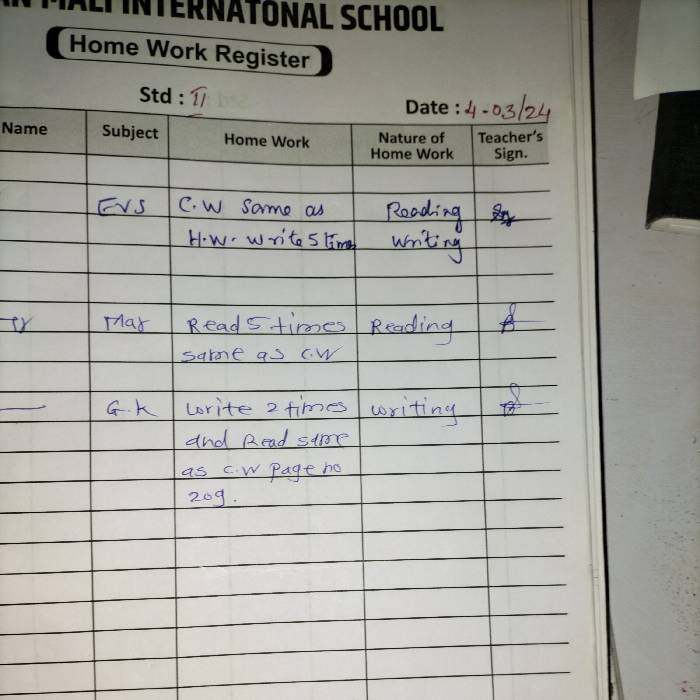 AN MALI INTERNATONAL SCHOOL
Home Work Register
Std : II
Date : 4-03/24
Name Subject Home Work Nature of Home Work Teacher's Sign.
EVS C.W Same as Reading
H.W. write 5 times writing
Mar Read 5 times Reading
same as C.W
G.K write 2 times writing
and Read same
as C.W page no
209.